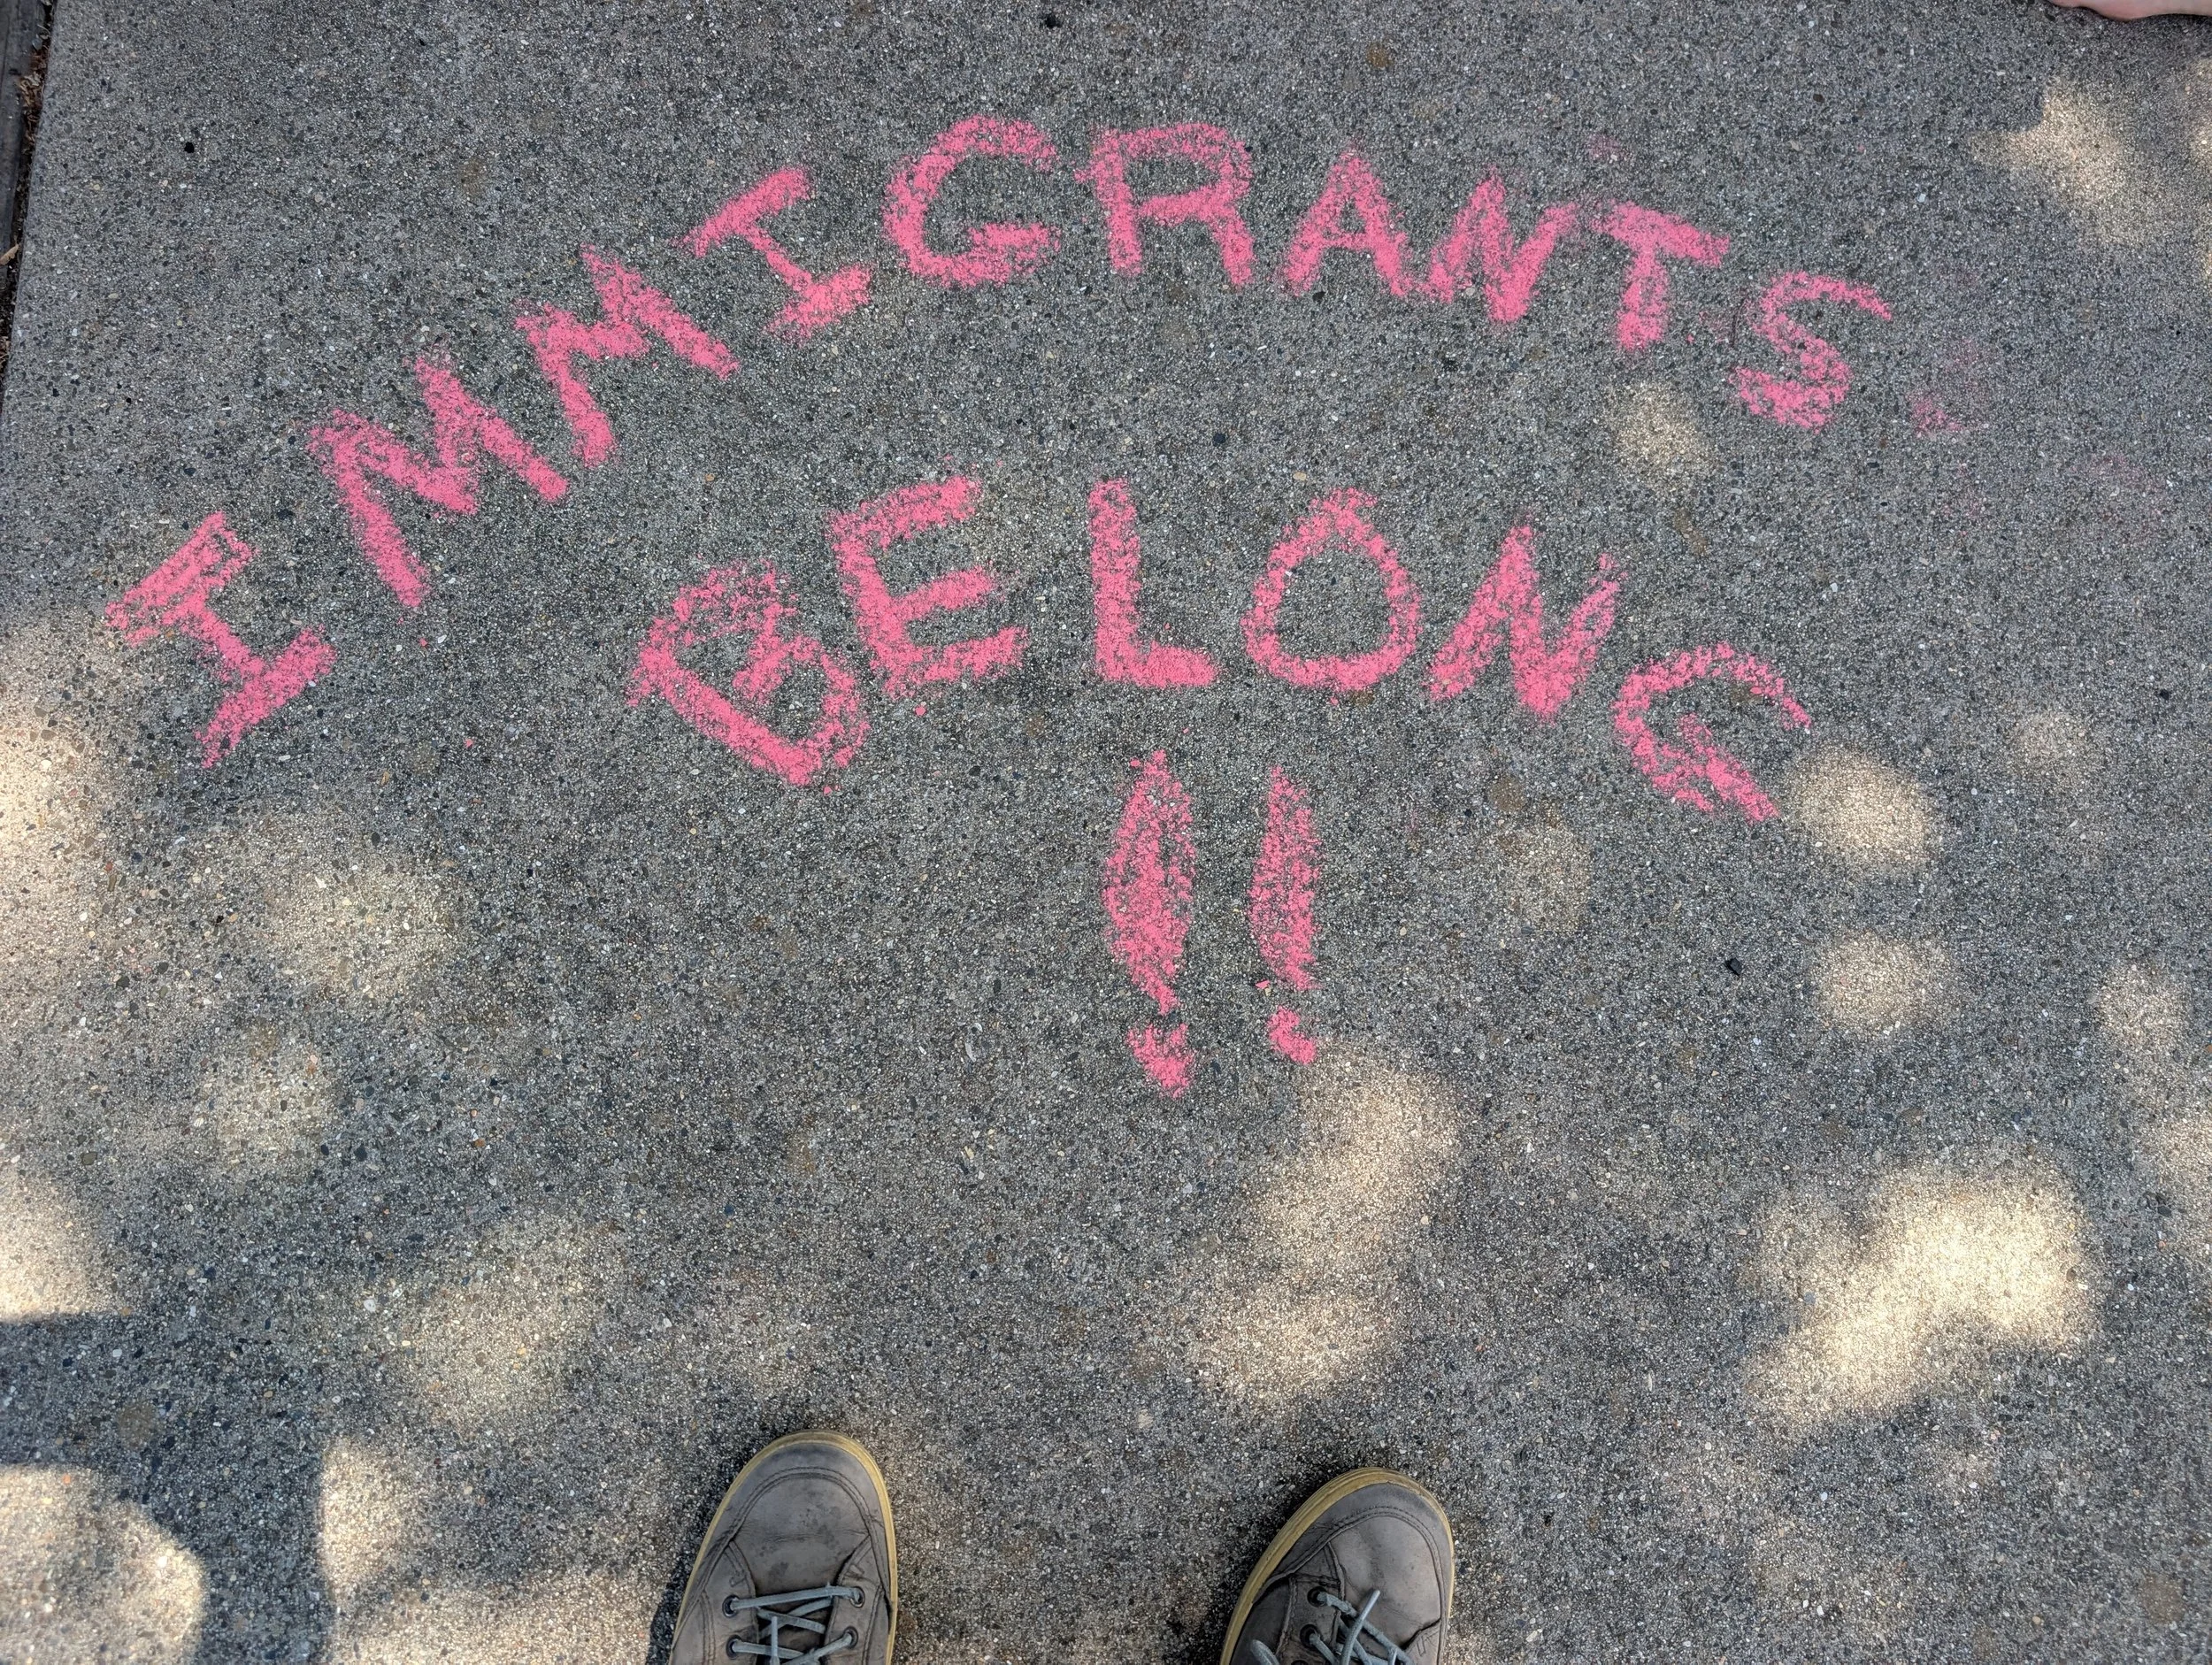 IMMIGRANTS
BELONG
!!